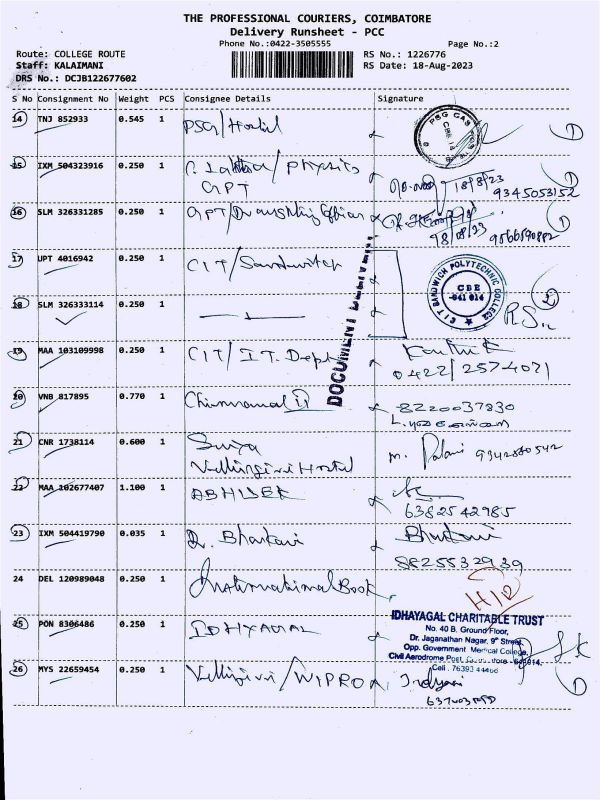 THE PROFESSIONAL COURIERS, COIMBATORE
Delivery Runsheet - PCC
Phone No.:0422-3505555
Page No.:2
Route: COLLEGE ROUTE
RS No.: 1226776
Staff: KALAIMANI
RS Date: 18-Aug-2023
DRS No.: DCJB122677602
S No Consignment No Weight PCS Consignee Details Signature
14 TNJ 852933 0.545 1 PSG/Hostel
15 IXM 504323916 0.250 1 Physics
GPT
18/8/23
9345053152
16 SLM 326331285 0.250 1 GPT/
18/08/23
17 UPT 4016942 0.250 1 CIT/Sandwitch
CIT SANDWICH POLYTECHNIC COLLEGE
CBE
641 014
18 SLM 326333114 0.250 1
RS.
DOCUMENT
19 MAA 103109998 0.250 1 CIT/I.T. Dept
0422/2574071
20 VNB 817895 0.770 1 Chinnamal
8220037830
21 CNR 1738114 0.600 1 Surya
Vellingiri Hostel
M. Palani
22 MAA 102677407 1.100 1 ABHISEK
6382542985
23 IXM 504419790 0.035 1 Bharkavi
8825532939
24 DEL 120989048 0.250 1 International Book
25 PON 8306486 0.250 1 IDHYAGAL
IDHAYAGAL CHARITABLE TRUST
No. 40 B, Ground Floor,
Dr. Jaganathan Nagar, 9th Street,
Opp. Government Medical College,
Civil Aerodrome Post, Coimbatore - 641014.
Cell : 76393 44466
26 MYS 22659454 0.250 1 Vellingiri/WIPRO